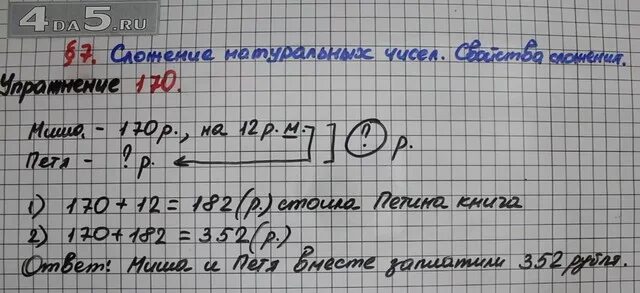 4DA5.RU
§7. Сложение натуральных чисел. Свойства сложения.
Упражнение 170.
Миша - 170 р., на 12 р. м. ] ? р.
Петя - ? р.
1) 170 + 12 = 182 (р.) стоила Петина книга
2) 170 + 182 = 352 (р.)
Ответ: Миша и Петя вместе заплатили 352 рубля.